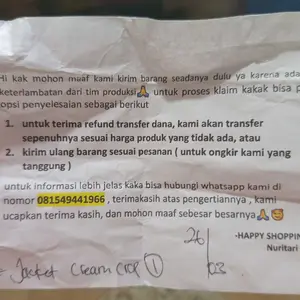 Hi kak mohon maaf kami kirim barang seadanya dulu ya karena ada
keterlambatan dari tim produksi🙏 untuk proses klaim kakak bisa p
opsi penyelesaian sebagai berikut
1. untuk terima refund transfer dana, kami akan transfer
sepenuhnya sesuai harga produk yang tidak ada, atau
2. kirim ulang barang sesuai pesanan ( untuk ongkir kami yang
tanggung )
untuk informasi lebih jelas kaka bisa hubungi whatsapp kami di
nomor 081549441966 , terimakasih atas pengertiannya , kami
ucapkan terima kasih, dan mohon maaf sebesar besarnya🙏😊
-HAPPY SHOPPIN
Nuritari
26/03
Jacket cream crop ①